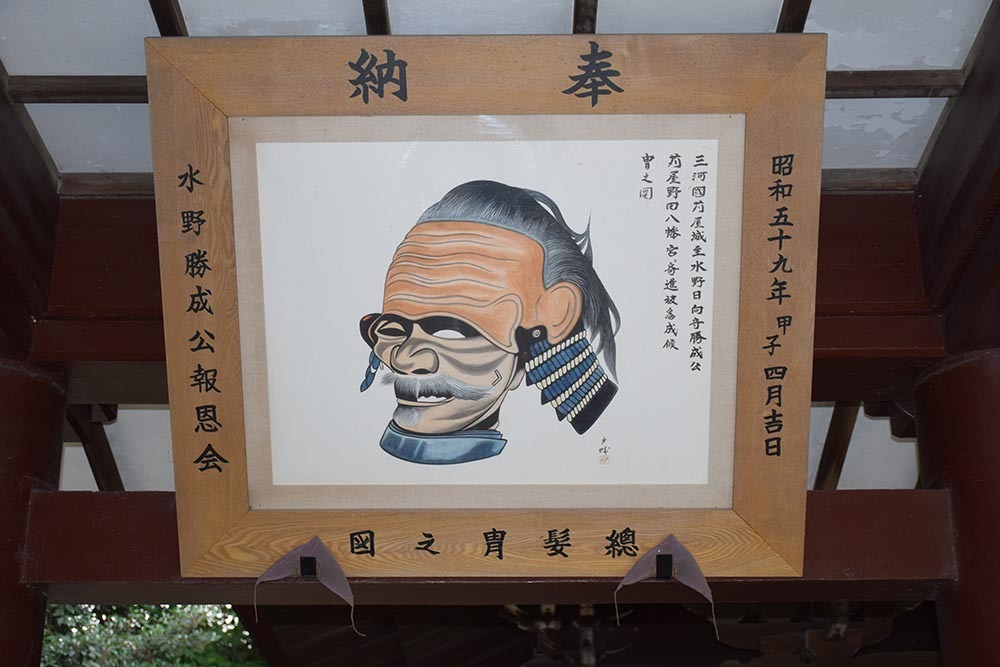 奉納
昭和五十九年 甲子 四月吉日
三河國苅屋城主水野日向守勝成公
苅屋野田八幡宮寄進被爲成候
冑之図
總髪冑之図
水野勝成公報恩会